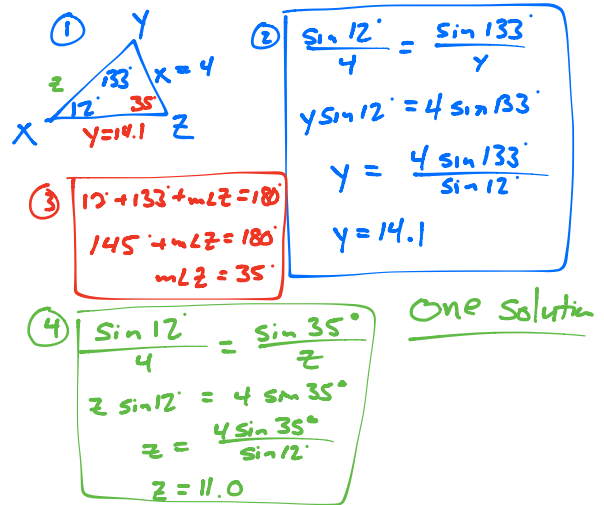 ①
Y
z
133°
x = 4
12°
35°
X
y=14.1
Z
②
sin 12° / 4 = sin 133° / y
y sin 12° = 4 sin 133°
y = 4 sin 133° / sin 12°
y = 14.1
③
12° + 133° + m∠Z = 180°
145° + m∠Z = 180°
m∠Z = 35°
④
sin 12° / 4 = sin 35° / z
z sin 12° = 4 sin 35°
z = 4 sin 35° / sin 12°
z = 11.0
one solution